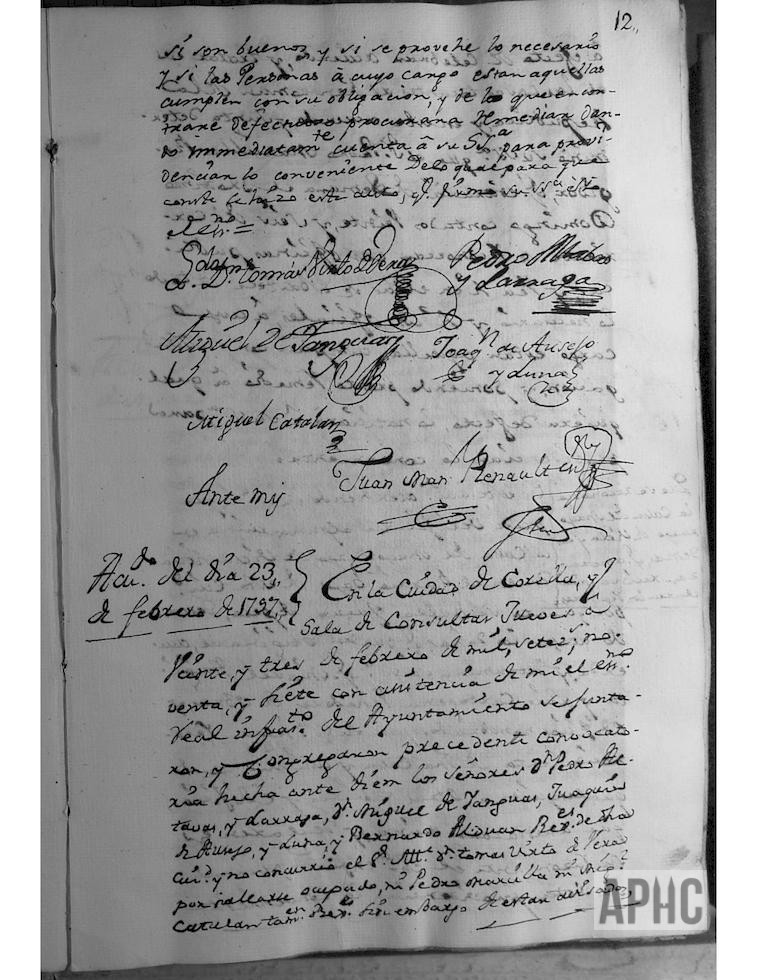 12.
si son buenos, y si se provehe lo necesario
y si las Personas à cuyo cargo estan aquellas
cumplen con su obligacion, y de lo que encon-
trare defectuoso, procurara Remediar dan-
do immediatam.te cuenta â su S.ria para provi-
denciar lo conveniente De lo qual para que
conste se hizo este auto, q.e firmó su S.ria
el es.no =
D. Tomás Virto de Vera
Pedro
y Larraga
Miguel de Tanguas
Joaq.n de Ausejo
y Luna
Miguel Catalan
Ante my
Juan Man.l Renault es.no
Acu.do del dia 23,,
de febrero de 1797,,
En la Ciudad de Corella, y
Sala de Consultas Jueves à
Veinte, y tres de febrero de mil, setez.s no-
venta, y siete con asistencia de mi el es.no
Real infras.to del Ayuntamiento se junta-
ron, y Congregaron precedente convocato-
ria hecha ante diem los señores D.n Pedro
y Larraga, D.n Miguel de Tanguas, Juaquin
de Ausejo, y Luna, y Bernardo Rex.es de dha
Ciu.d y no concurrió el S.r Alc.e D.n tomas Virto de Vera
por hallarse ocupado, ni Pedro ni Mig.l
Catalan tam.en Rex.s sin embargo de estar avisados,
APHC